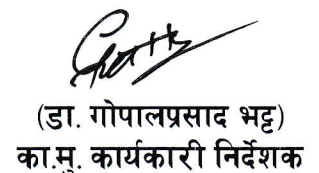 (डा. गोपालप्रसाद भट्ट)
का.मु. कार्यकारी निर्देशक